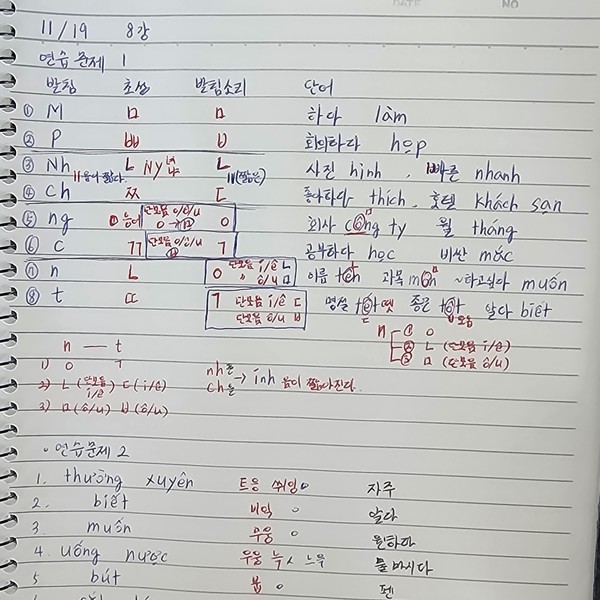 DATE NO
11/19 8강
연습문제 1
받침 초성 받침소리 단어
① M ㅁ ㅁ 하다 làm
② P ㅃ ㅂ 회의하다 họp
③ Nh ㄴ Ny ㄴ 사진 hình , 빠른 nhanh
음이 짧다. (짧은)
④ Ch ㅉ ㄷ 좋아하다 thích, 호텔 khách sạn
⑤ ng 응어 단모음 o/ô/u ㅇ→ㅁ ㅇ 회사 công ty 월 tháng
⑥ C ㄲ 단모음 o/ô/u ㅂ ㄱ 공부하다 học 비싼 mắc
⑦ n ㄴ ㅇ 단모음 i/ê ㄴ 이름 tên 과목 môn ~하고싶다 muốn
〃 ô/u ㅁ
⑧ t ㄸ ㄱ 단모음 i/ê ㄷ 명절 tết 뗏 좋은 tốt 알다 biết
단모음 ô/u ㅂ
n ① ㅇ
② ㄴ (단모음 i/ê)
③ ㅁ (단모음 ô/u)
n — t
1) ㅇ ㄱ
2) ㄴ (단모음 i/ê) ㄷ (i/ê)
3) ㅁ (ô/u) ㅂ (ô/u)
nh는
ch는 → inh 음이 짧아진다.
· 연습문제 2
1. thường xuyên 트응 쒸잉 자주
2. biết 비익 알다
3. muốn 무응 원하다
4. uống nước 우응 늑 느윽 물마시다
5 bút 붑 펜